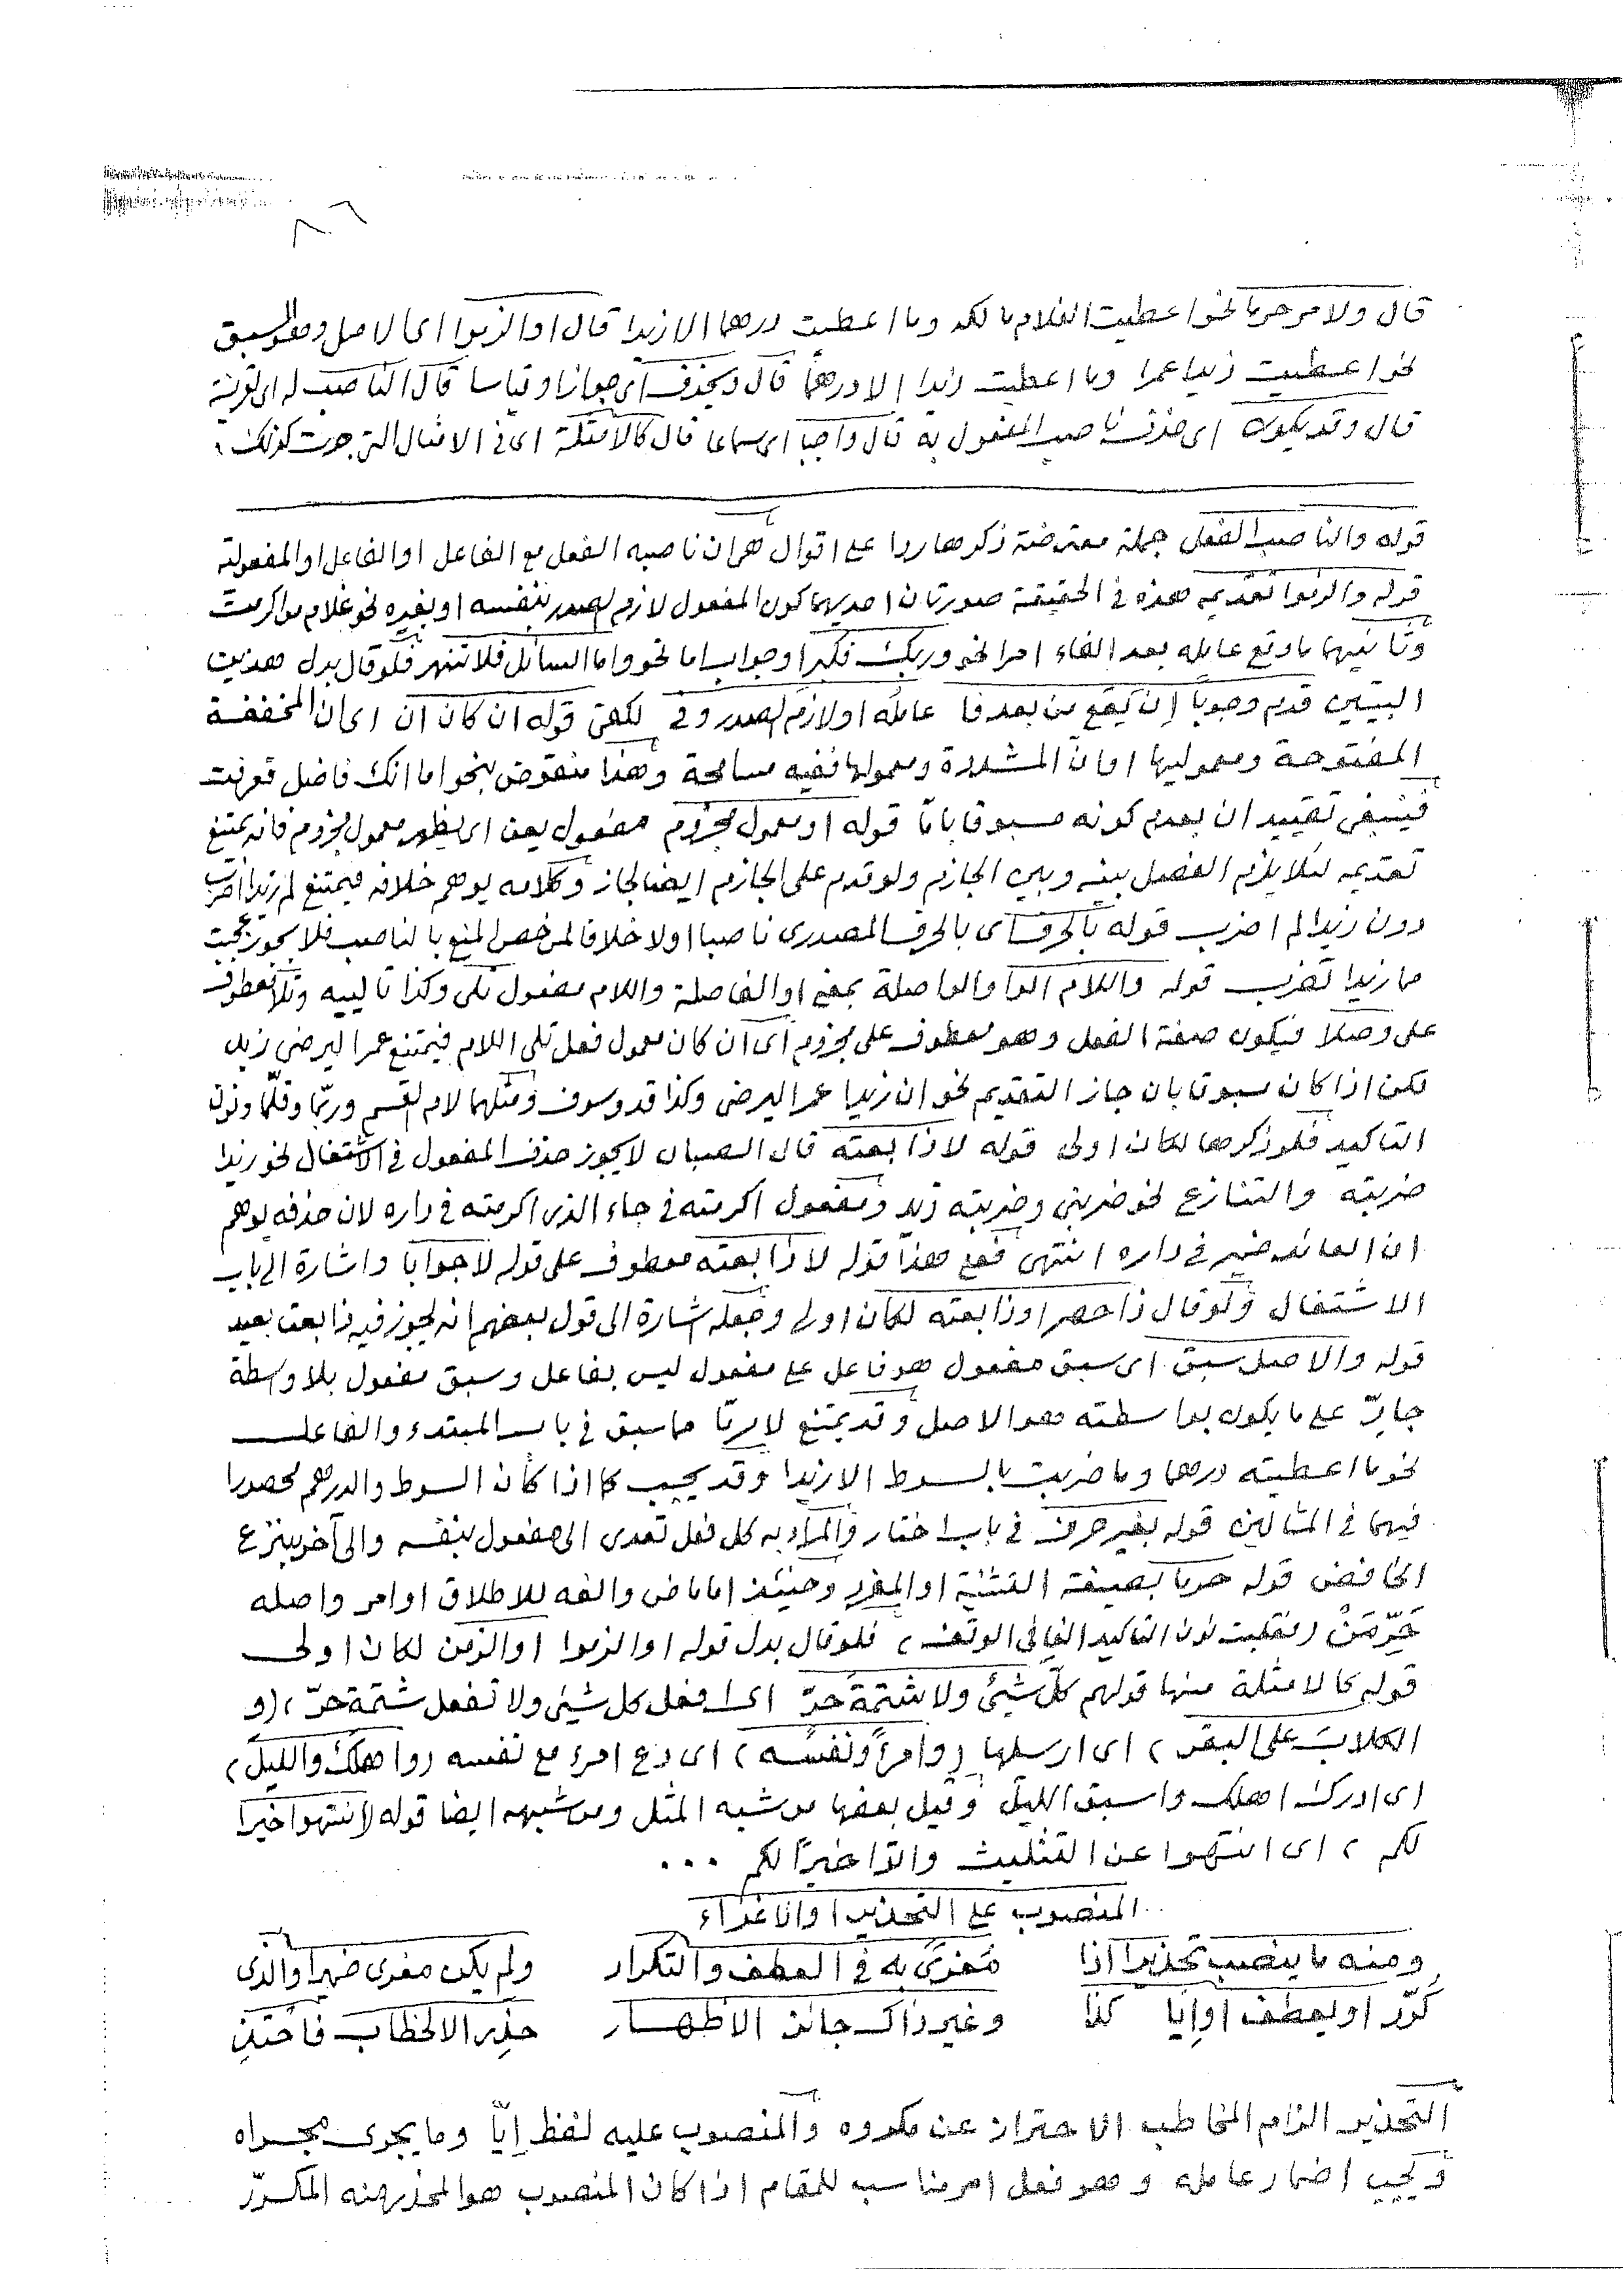 ٨٦
قال ولا مر حرما نحو اعطيت الغلام مالكه وما اعطيت درهما الا زيدا قال او الزموا اى الاصل وهو السبق
نحو اعطيت زيدا عمرا وما اعطيت زيدا الا درهما قال ويحذف اى جوازا وقياسا قال الناصب له اى لقرينة
قال وقد يكون اى حذف ناصب المفعول به قال واجبا اى سماعا قال كالامثلة اى فى الامثال التى جرت كذلك
قوله والناصب الفعل جملة معترضة ذكرها ردا على اقوال هى ان ناصبه الفعل مع الفاعل او الفاعل او المفعولية
قوله والزموا تقديمه هذه فى الحقيقة صورتان احديهما كون المفعول لازم الصدر بنفسه او بغيره نحو غلام من اكرمت
وثانيهما ما وقع عامله بعد الفاء امرا نحو وربك فكبر او جواب اما نحو واما السائل فلا تنهر فلو قال بدل هذين
البيتين قدم وجوبا ان يقع من بعد فا عامله او لازم الصدر وفى لكفى قوله ان كان ان اى ان المخففة
المفتوحة ومعموليها او ان المشددة ومعمولها ففيه مسامحة وهذا منقوض بنحو اما انك فاضل فعرفت
فينبغى تقييد ان بعدم كونه مسبوقا باما قوله او معمول مجزوم مفعول يعن اى يظهر معمول مجزوم فانه يمتنع
تقديمه لئلا يلزم الفصل بينه وبين الجازم ولو قدم على الجازم ايضا لجاز وكلامه يوهم خلافه فيمتنع لم زيدا اضرب
دون زيدا لم اضرب قوله بالحرف اى بالحرف المصدرى ناصبا او لا خلافا لمن خص المنع بالناصب فلا يجوز عجبت
مما زيدا تضرب قوله واللام الواو الواصلة بمعنى او الفاصلة واللام مفعول تلى وكذا تالييه وتلا معطوف
على وصلا فيكون صفة الفعل وهو معطوف على مجزوم اى ان كان معمول فعل تلى اللام فيمتنع عمرا ليرضى زيد
لكن اذا كان مسبوقا بان جاز التقديم نحو ان زيدا عمرا ليرضى وكذا قد وسوف ومثلهما لام القسم وربما وقلما ونون
التاكيد فلو ذكرها لكان اولى قوله لا ذا بعته قال الصبان لا يجوز حذف المفعول فى الاشتغال نحو زيدا
ضربته والتنازع نحو ضربنى وضربته زيد ومفعول اكرمته فى جاء الذى اكرمته فى داره لان حذفه يوهم
ان العائد ضمير فى داره انتهى فمع هذا قوله لا ذا بعته معطوف على قوله لا جوابا واشارة الى باب
الاشتغال ولو قال ذا حصر او ذا بعته لكان اولى وجعله اشارة الى قول بعضهم انه يجوز فيه ذا بعت بعيد
قوله والاصل سبق اى سبق مفعول هو فاعل على مفعول ليس بفاعل وسبق مفعول بلا واسطة
جارّ على ما يكون بواسطته هو الاصل وقد يمتنع لامر ما مما سبق فى باب المبتدء والفاعل
نحو ما اعطيته درهما وما ضربت بالسوط الا زيدا وقد يجب كما اذا كان السوط والدرهم محصورا
فيهما فى المثالين قوله بغير حرف فى باب اختار والمراد به كل فعل تعدى الى مفعول بنفسه والى آخر بنزع
الخافض قوله حرما بصيغة التثنية او المفرد وحينئذ اما ماض والفه للاطلاق او امر واصله
حَرِّمَنْ (نقلبت نون التاكيد الفا فى الوقف) فلو قال بدل قوله او الزموا او الزمن لكان اولى
قوله كالامثلة منها قولهم كلّ شيئ ولا شتمة حرّ اى افعل كل شيئ ولا تفعل شتمة حرّ (و
الكلابَ على البقر) اى ارسلها (وامرأً ونفسَه) اى دع امرء مع نفسه (واهلك والليلَ)
اى ادرك اهلك واسبق الليل وقيل بعضها من شبه المثل ومن شبهه ايضا قوله (انتهوا خيرا
لكم) اى انتهوا عن التثليث واتوا خيرا لكم ...
المنصوب على التحذير او الاغراء
ومنه ما ينصب تحذيرا اذا مُغرًى به فى العطف والتكرار ولم يكن مغرى ضميرا والذى
كرّر او يعطف او ايا كذا وغير ذاك جائز الاظهار حذر الالخطاب فاحتذِ
التحذير الزام المخاطب الاحتراز عن مكروه والمنصوب عليه لفظ إيّا وما يجرى مجراه
ويجب اضمار عامله وهو فعل امر مناسب للمقام اذا كان المنصوب هو المحذر منه المكرّر